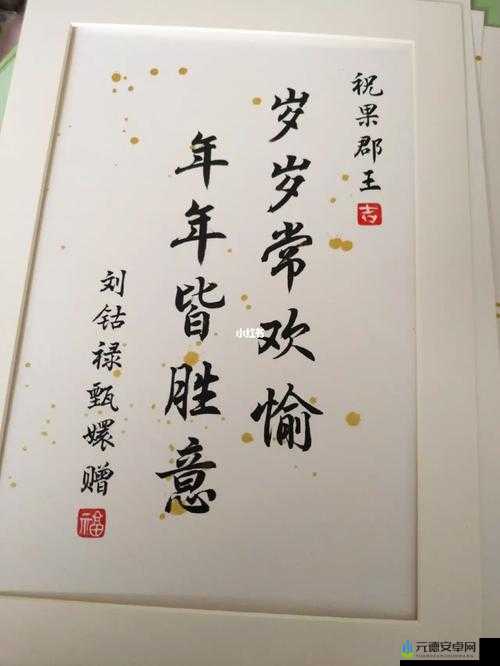 祝果郡王
吉
岁岁常欢愉
年年皆胜意
刘钴禄甄嬛赠
福
小红书
元德安卓网